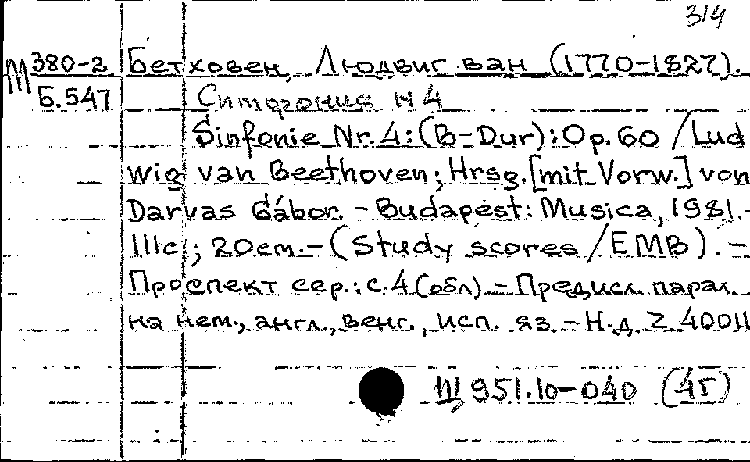 314
М 380-2 Бетховен, Людвиг ван (1770-1827).
Б.547 Симфония N 4
Sinfonie Nr. 4: (B-Dur): Op. 60 / Lud
wig van Beethoven; Hrsg. [mit Vorw.] von
Darvas Gábor. - Budapest: Musica, 1981. -
111c.; 20cm. - (Study scores / EMB). -
Проспект сер.: с. 4 (обл) - Предисл. парал.
на нем., англ., венг., исп. яз - Н.д. Z 40011
Щ 951.10-040 (45)